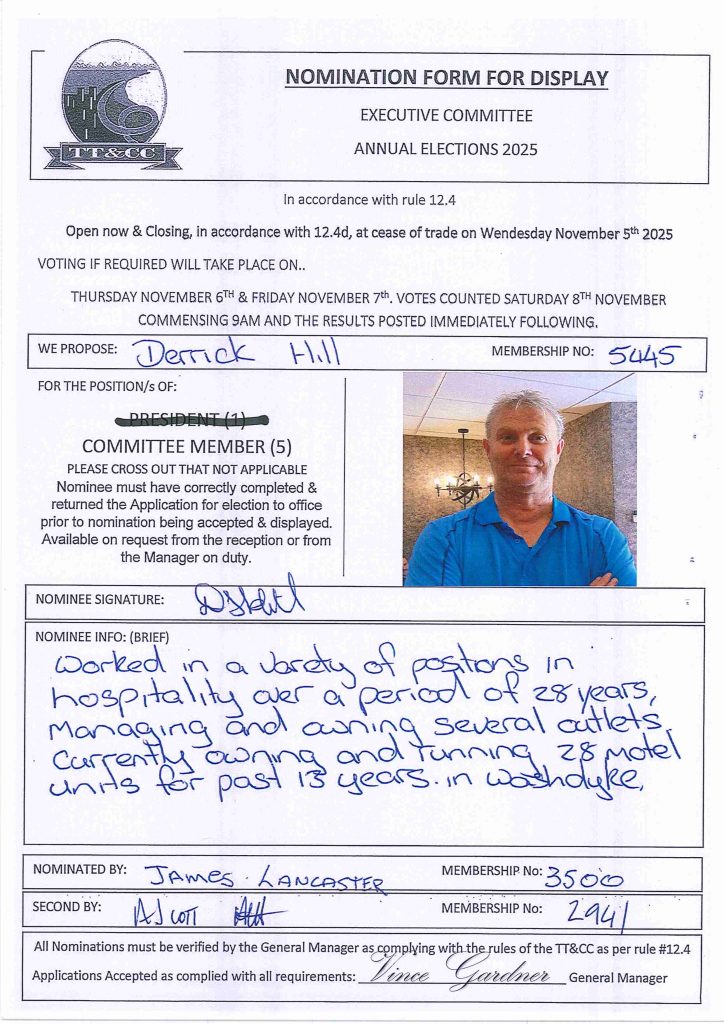 TT&CC
NOMINATION FORM FOR DISPLAY
EXECUTIVE COMMITTEE
ANNUAL ELECTIONS 2025
In accordance with rule 12.4
Open now & Closing, in accordance with 12.4d, at cease of trade on Wendesday November 5th 2025
VOTING IF REQUIRED WILL TAKE PLACE ON..
THURSDAY NOVEMBER 6TH & FRIDAY NOVEMBER 7th. VOTES COUNTED SATURDAY 8TH NOVEMBER
COMMENSING 9AM AND THE RESULTS POSTED IMMEDIATELY FOLLOWING.
WE PROPOSE: Derrick Hill MEMBERSHIP NO: 5445
FOR THE POSITION/s OF:
PRESIDENT (1)
COMMITTEE MEMBER (5)
PLEASE CROSS OUT THAT NOT APPLICABLE
Nominee must have correctly completed &
returned the Application for election to office
prior to nomination being accepted & displayed.
Available on request from the reception or from
the Manager on duty.
NOMINEE SIGNATURE:
NOMINEE INFO: (BRIEF)
Worked in a varety of positions in
hospitality over a period of 28 years,
Managing and owning several outlets.
Currently owning and running 28 Motel
units for past 13 years. in Washdyke.
NOMINATED BY: JAMES LANCASTER MEMBERSHIP No: 3500
SECOND BY: MEMBERSHIP No: 2941
All Nominations must be verified by the General Manager as complying with the rules of the TT&CC as per rule #12.4
Applications Accepted as complied with all requirements: Vince Gardner General Manager